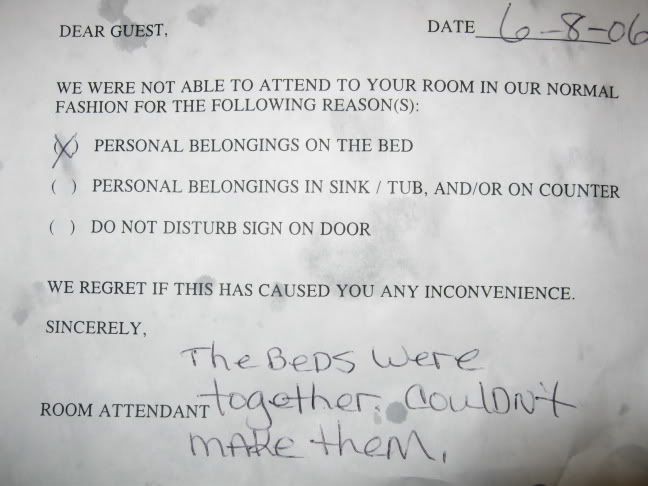 DEAR GUEST, DATE 6-8-06
WE WERE NOT ABLE TO ATTEND TO YOUR ROOM IN OUR NORMAL
FASHION FOR THE FOLLOWING REASON(S):
(X) PERSONAL BELONGINGS ON THE BED
( ) PERSONAL BELONGINGS IN SINK / TUB, AND/OR ON COUNTER
( ) DO NOT DISTURB SIGN ON DOOR
WE REGRET IF THIS HAS CAUSED YOU ANY INCONVENIENCE.
SINCERELY,
The BeDS were
ROOM ATTENDANT together. COulDN't
mAKe theM.